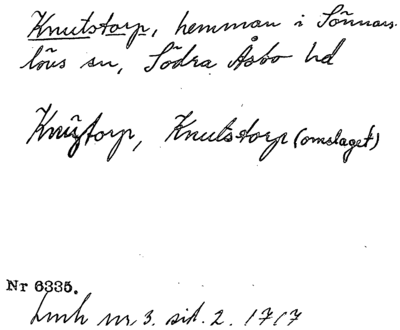 Knutstorp, hemman i Sönnars-
löus sn, Södra Åsbo hd
Knutztorp, Knutstorp (omslaget)
Nr 6335.
Lmh nr 3. sid. 2. 1717